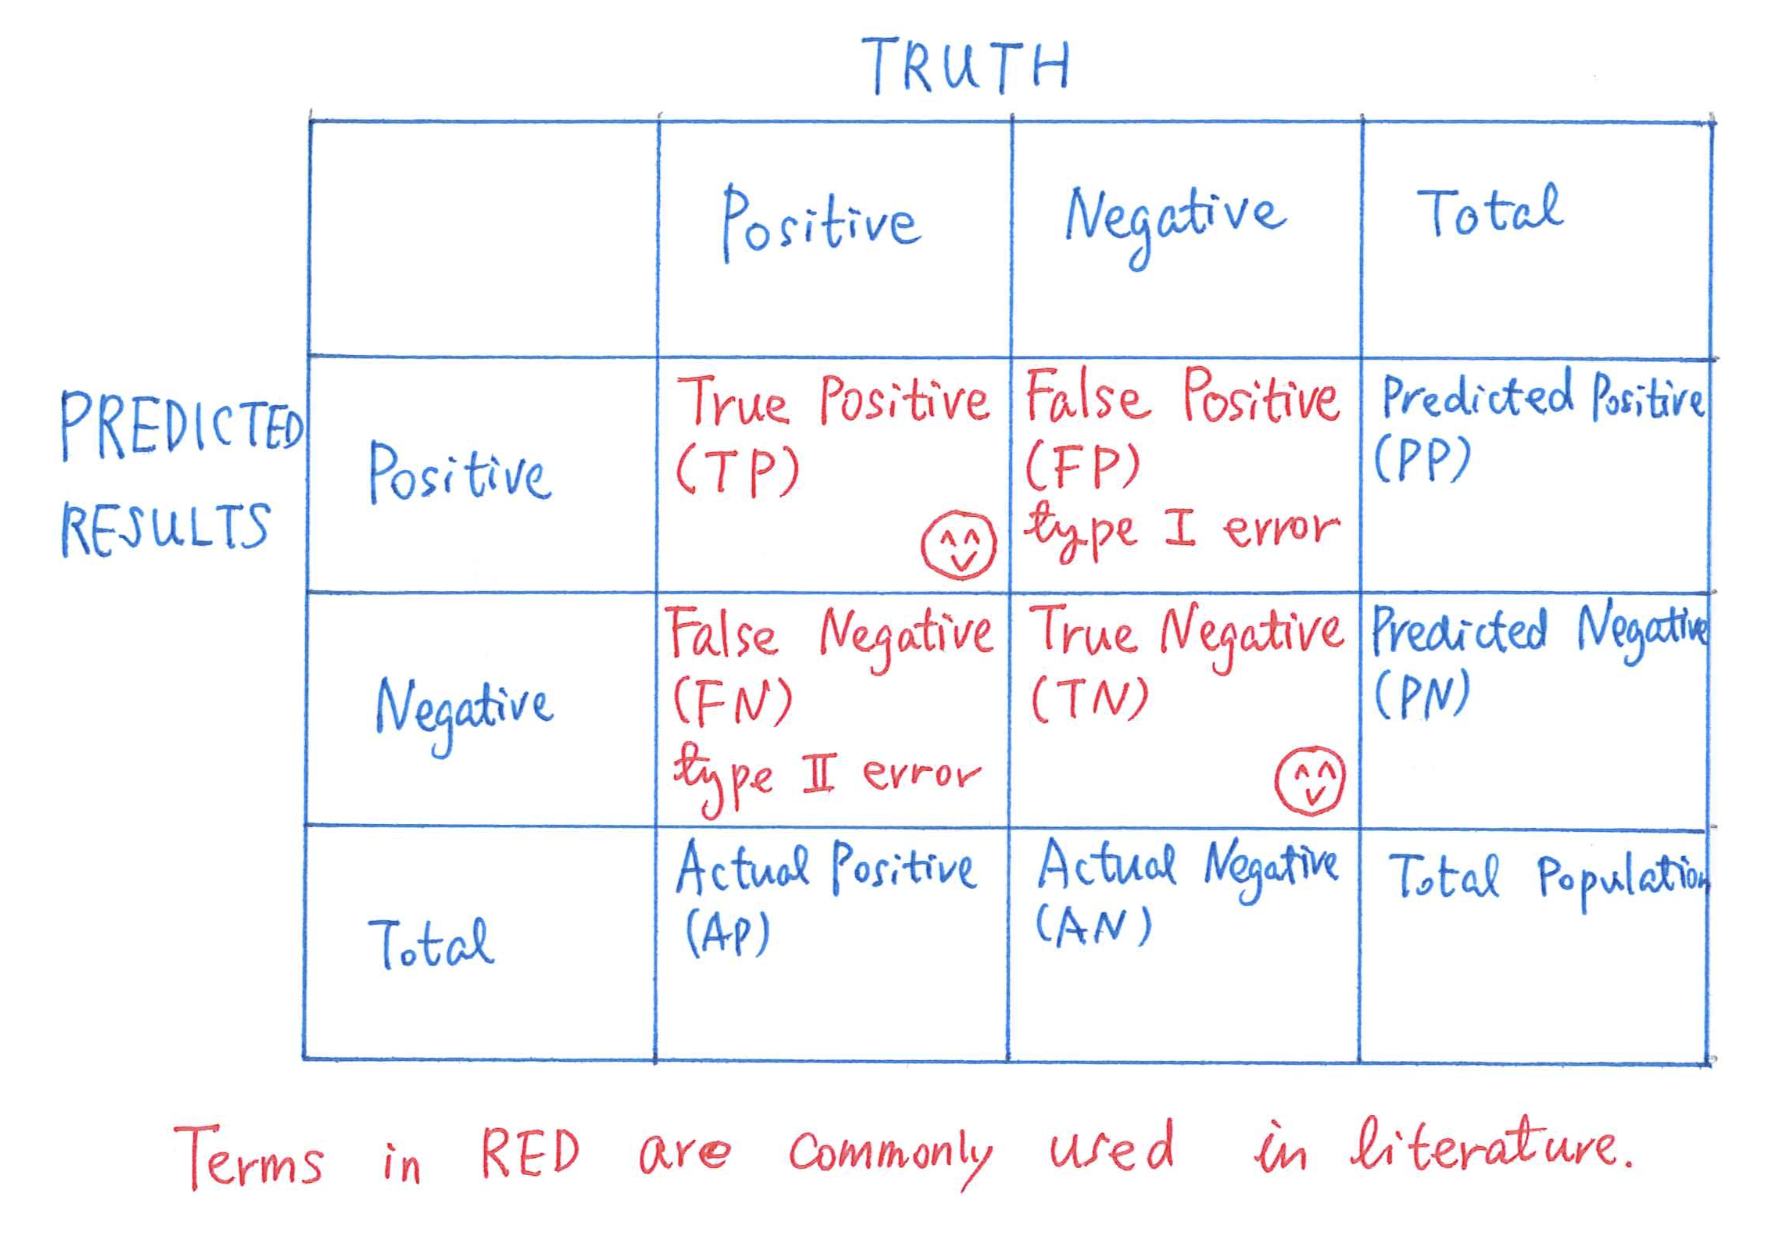 TRUTH
Positive Negative Total
PREDICTED
RESULTS
Positive
True Positive
(TP)
False Positive
(FP)
type I error
Predicted Positive
(PP)
Negative
False Negative
(FN)
type II error
True Negative
(TN)
Predicted Negative
(PN)
Total
Actual Positive
(AP)
Actual Negative
(AN)
Total Population
Terms in RED are commonly used in literature.